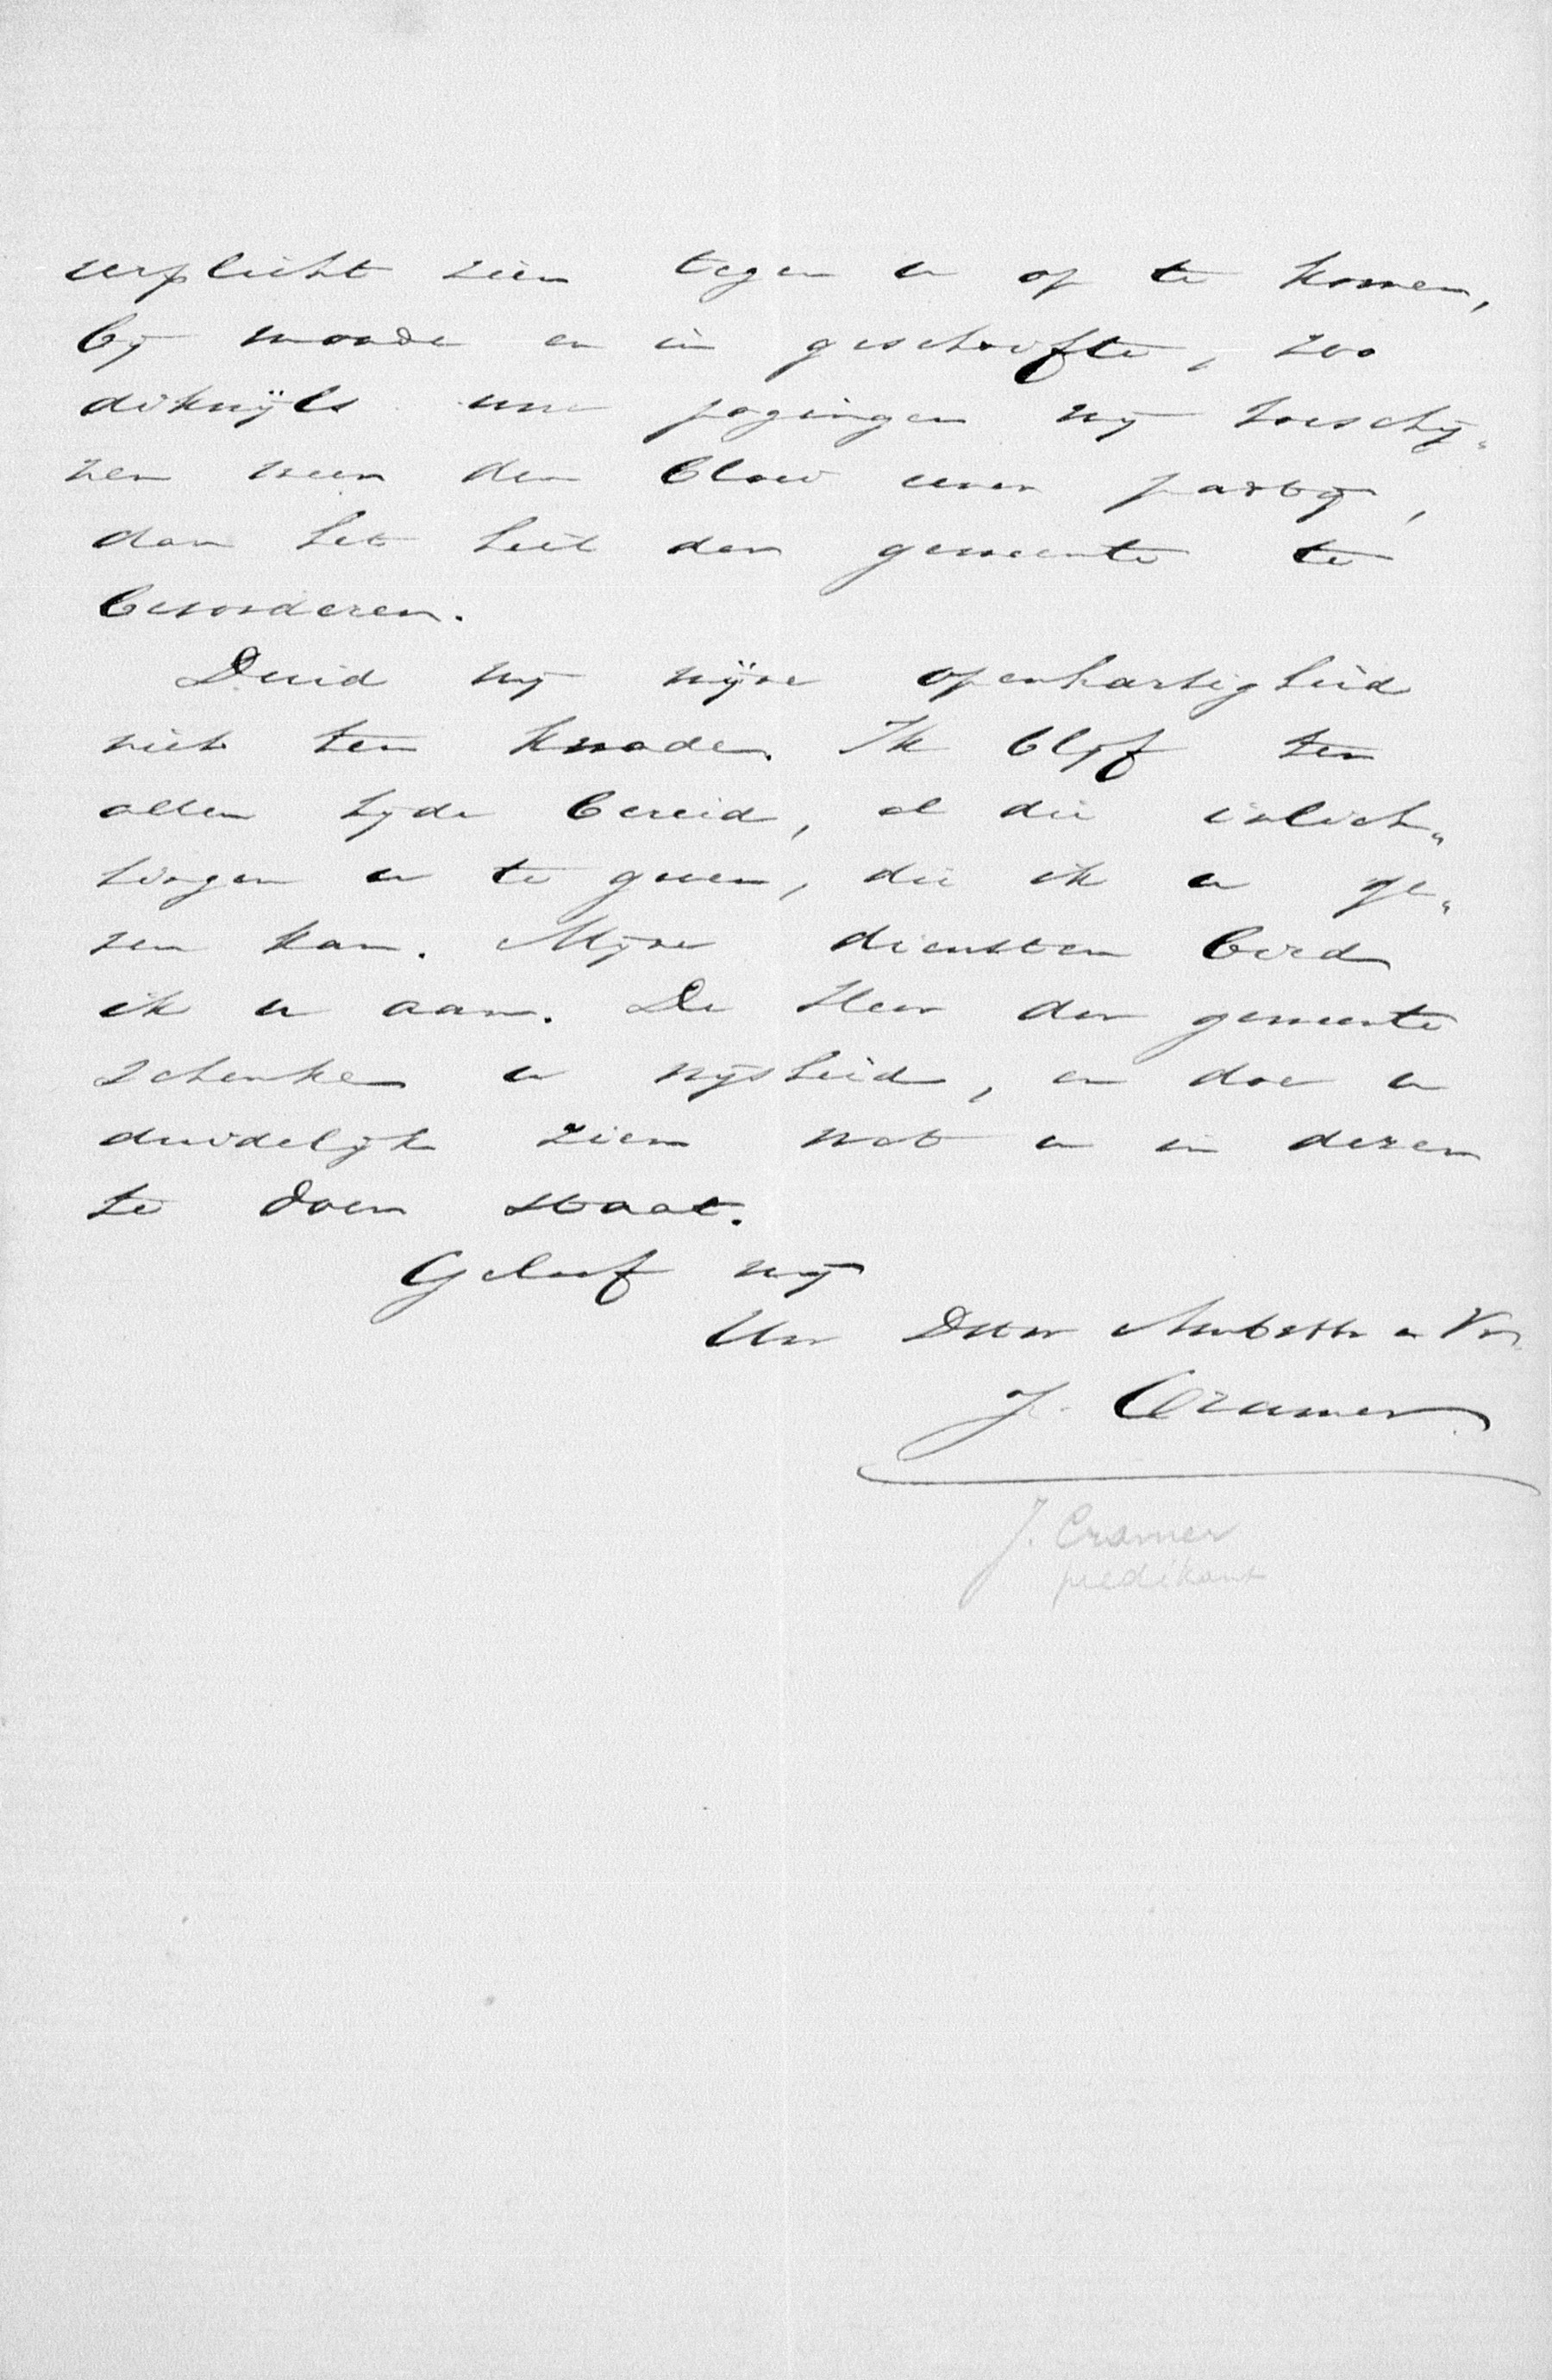 verplicht zien tegen u op te komen,
bij monde en in geschrifte, zoo
dikwijls uwe pogingen mij toeschij„
nen meer den bloei eener partij,
dan het heil der gemeente te
bevorderen.
Duid mij mijne openhartigheid
niet ten kwade. Ik blijf ten
allen tijde bereid, al die inlich„
tingen u te geven, die ik u ge„
ven kan. Mijne diensten bied
ik u aan. De Heer der gemeente
schenke u wijsheid, en doe u
duidelijk zien wat u in dezen
te doen staat.
Geloof mij
Uw Dw Ambtsbr en Vr.
J. Cramer
J. Cramer
predikant